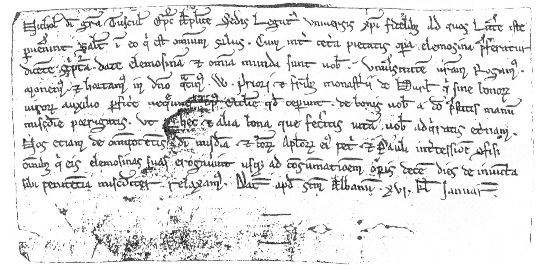 Nichol di gra Tuscul Epc aplice Sedis Legat universis xpi fidelib ad quos Littere iste
pvenerint Salt i eo q est omnium salus. Cum int cetera pietatis opa elemosina pferatur
dicente sciptura date elemosina & omia munda sunt vob. Universitatem vram Rogam.
monem & hortam in dno qtin W. Priori & frib monasterii de Hurl q sine bonor
viror auxilio pficere nequnt op Ecclie qd ceperunt de bonis vob a do pstitis manum
miscdie porrigatis. ut p hec & alia bona que feceritis vitam vob adqiratis etnam.
Nos etiam de omipotentis di misdia & btor aplor ei pet & Pauli intcessioe cfisi
omib q eis elemosinas suas erogaverint usq ad csumatioem opis decem dies de iniuncta
sibi penitentia miscdit relaxam. Dat apd scm Albanum xvi. kl Januarii